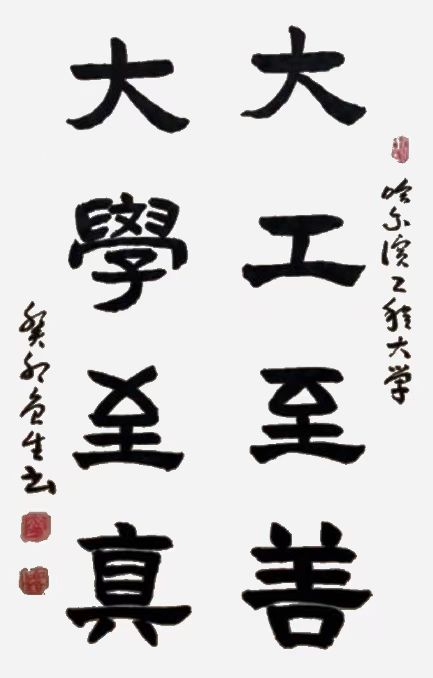 哈尔滨工程大学
大工至善
大學至真
癸卯生书